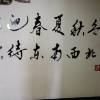 迎春夏秋冬
待东南西北